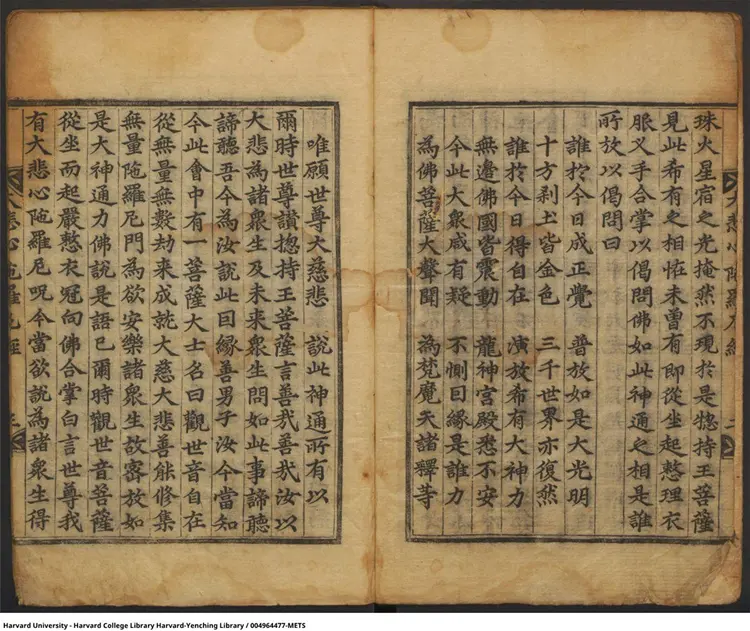 珠火星宿之光掩然不現於是惣持王菩薩
見此希有之相恠未曽有即從坐起整理衣
服叉手合掌以偈問佛如此神通之相是誰
所放以偈問曰
誰於今日成正覺 普放如是大光明
十方刹土皆金色 三千世界亦復然
誰於今日得自在 演放希有大神力
無邊佛國皆震動 龍神宮殿悉不安
今此大衆咸有疑 不惻因緣是誰力
為佛菩薩大聲聞 為梵魔天諸釋䓁
大悲心陁羅尼經 二
唯願世尊大慈悲 說此神通所有以
爾時世尊讃揔持王菩薩言善㢤善㢤汝以
大悲為諸衆生及未来衆生問如此事諦聽
諦聽吾今為汝說此因緣善男子汝今當知
今此㑹中有一菩薩大士名曰觀世音自在
從無量無數劫来成就大慈大悲善能修集
無量陁羅尼門為欲安樂諸衆生故宻放如
是大神通力佛說是語已爾時觀世音菩薩
從坐而起嚴整衣冠向佛合掌白言世尊我
有大悲心陁羅尼呪今當欲說為諸衆生得
大悲心陁羅尼經 三
Harvard University - Harvard College Library Harvard-Yenching Library / 004964477-METS